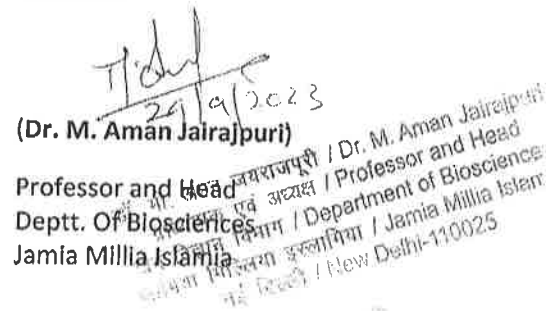 29/9/2023
(Dr. M. Aman Jairajpuri)
Professor and Head
Deptt. Of Biosciences
Jamia Millia Islamia
जयराजपूरी / Dr. M. Aman Jairajpuri
एवं अध्यक्ष / Professor and Head
विभाग / Department of Bioscience
मिल्लिया इस्लामिया / Jamia Millia Islam
नई दिल्ली / New Delhi-110025